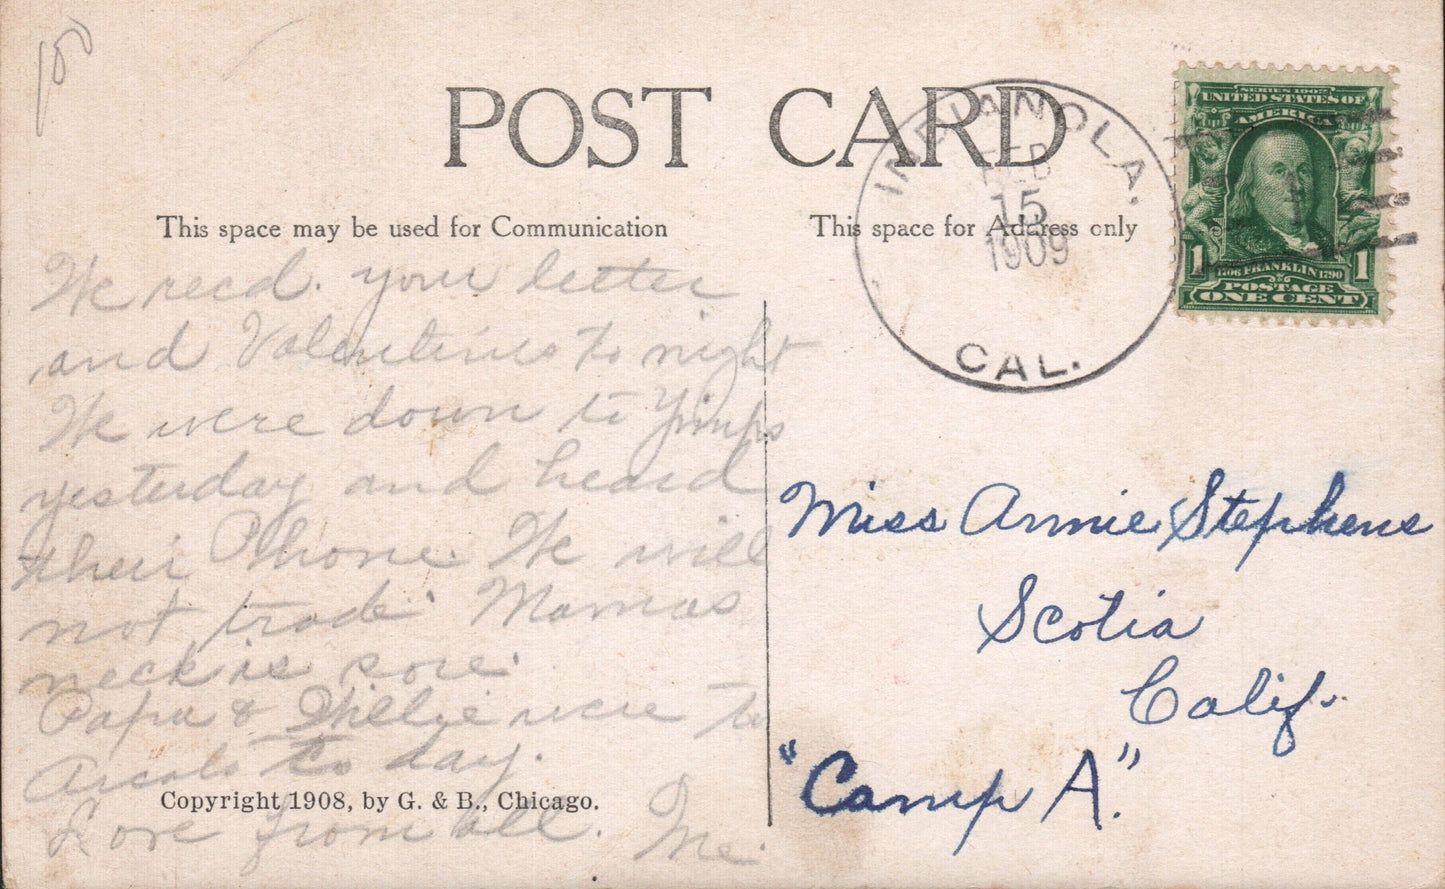 POST CARD
INDIANOLA.
FEB
15
1909
CAL.
SERIES 1902
UNITED STATES OF
AMERICA
1 1706 FRANKLIN 1790 1
POSTAGE
ONE CENT
This space may be used for Communication
This space for Address only
We recd. your letter
and Valentines to night
We were down to Yimps
yesterday and heard
their Phone. We will
not trade. Mamas
neck is sore.
Papa & Willie were to
to day.
Love from all. Me.
Copyright 1908, by G. & B., Chicago.
Miss Annie Stephens
Scotia
Calif.
"Camp A."